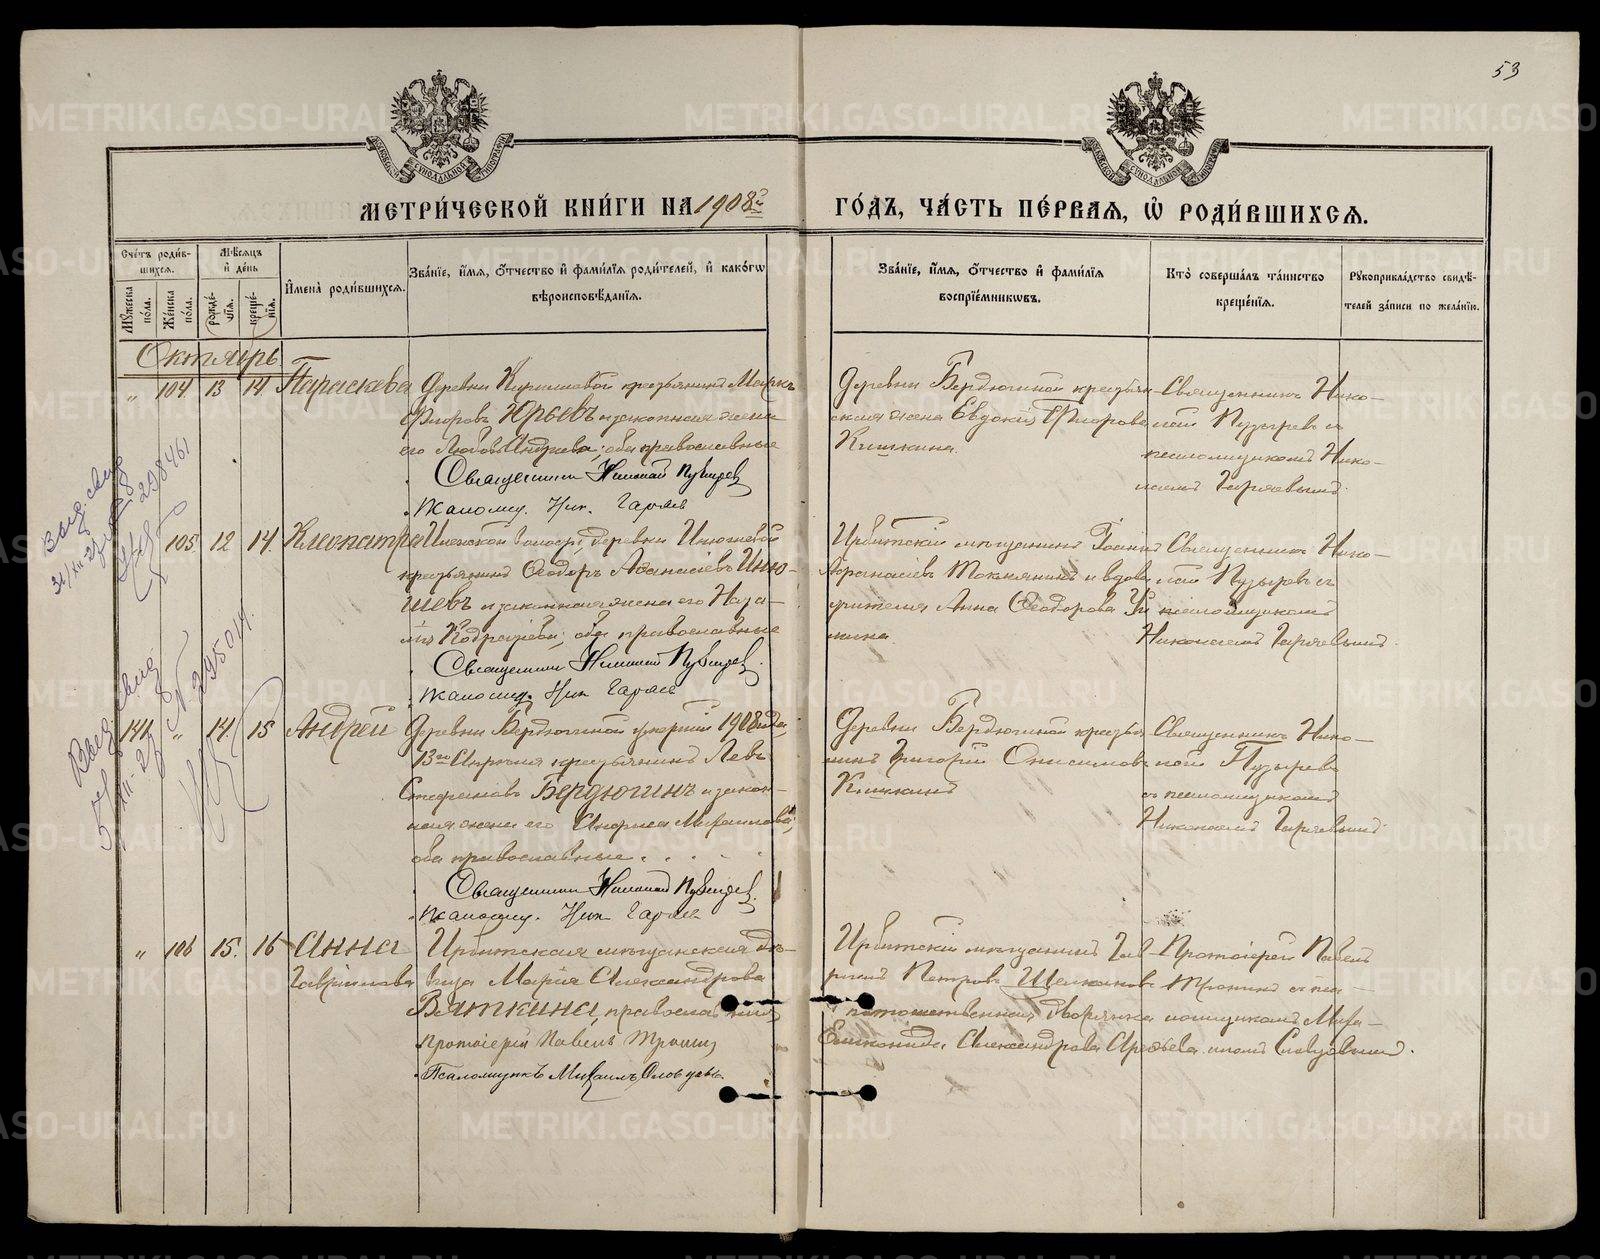 53
МЕТРИ́ЧЕСКОЙ КНИ́ГИ НА 1908й ГО́ДЪ, ЧА́СТЬ ПЕ́РВАЯ, Ѡ҆ РОДИ́ВШИХСЯ.
Сче́тъ роди́в-
шихся.
Мѣ́сяцъ
и҆ де́нь
Мꙋ́жеска по́ла.
Же́нска по́ла.
рожде́-
нїѧ.
креще́-
нїѧ.
И҆мена̀ роди́вшихся.
Зва́нїе, и҆́мя, ѻ҆́тчество и҆ фами́лїя роди́телей, и҆ како́гѡ
вѣроисповѣ́данїя.
Зва́нїе, и҆́мя, ѻ҆́тчество и҆ фами́лїя
воспрїе́мникѡвъ.
Кто̀ соверша́лъ та́инство
креще́нїя.
Рꙋкоприкла́дство свидѣ́-
телей за́писи по жела́нїю.
Октябрь
" 104 13 14 Параскева
Деревни Кириловой крестьянинъ Маркъ
Флоровъ Юрьевъ и законная жена
его Любовь Андреева, оба православные
Священникъ Николай Пузыревъ
Псаломщ. Ник. Гаряев
Деревни Бердюгиной крестьян-
ская жена Евдокия Флорова
Кишкина.
Священникъ Нико-
лай Пузыревъ съ
псаломщикомъ Нико-
лаемъ Гаряевымъ.
105 12 14. Клеопатра
волости, деревни
крестьянинъ Ѳеодоръ Аѳанасіевъ Иню-
шевъ и законная жена его
оба православные
Священникъ Николай Пузыревъ
Псаломщ. Ник. Гаряев
Ирбитскій мѣщанинъ Іоаннъ
Аѳанасіевъ и вдова
учителя Анна Ѳеодорова
Священникъ Нико-
лай Пузыревъ съ
псаломщикомъ
Николаемъ Гаряевымъ.
141 " 14 15 Андрей
Деревни Бердюгиной умершій 1908 года,
13го Апрѣля крестьянинъ Левъ
Стефановъ Бердюгинъ и закон-
ная жена его Михаилова,
оба православные
Священникъ Николай Пузыревъ
Псаломщ. Ник. Гаряев
Деревни Бердюгиной крестья-
нинъ Григорій Онисимовъ
Кишкинъ
Священникъ Нико-
лай Пузыревъ
съ псаломщикомъ
Николаемъ Гаряевымъ.
" 106 15. 16 Анна
Гавріилова
Ирбитская мѣщанская дѣ-
вица Марія Александрова
Вяткина, православная
Протоіерей Павелъ
Псаломщикъ Михаилъ Словцовъ
Ирбитскій мѣщанинъ Гав-
ріилъ Петровъ
потомственная дворянка
Александрова
Протоіерей Павелъ
съ пса-
ломщикомъ Миха-
иломъ Словцовымъ.
Выд. свид.
298461
Выд. свид.
№ 295014.
METRIKI.GASO-URAL.RU